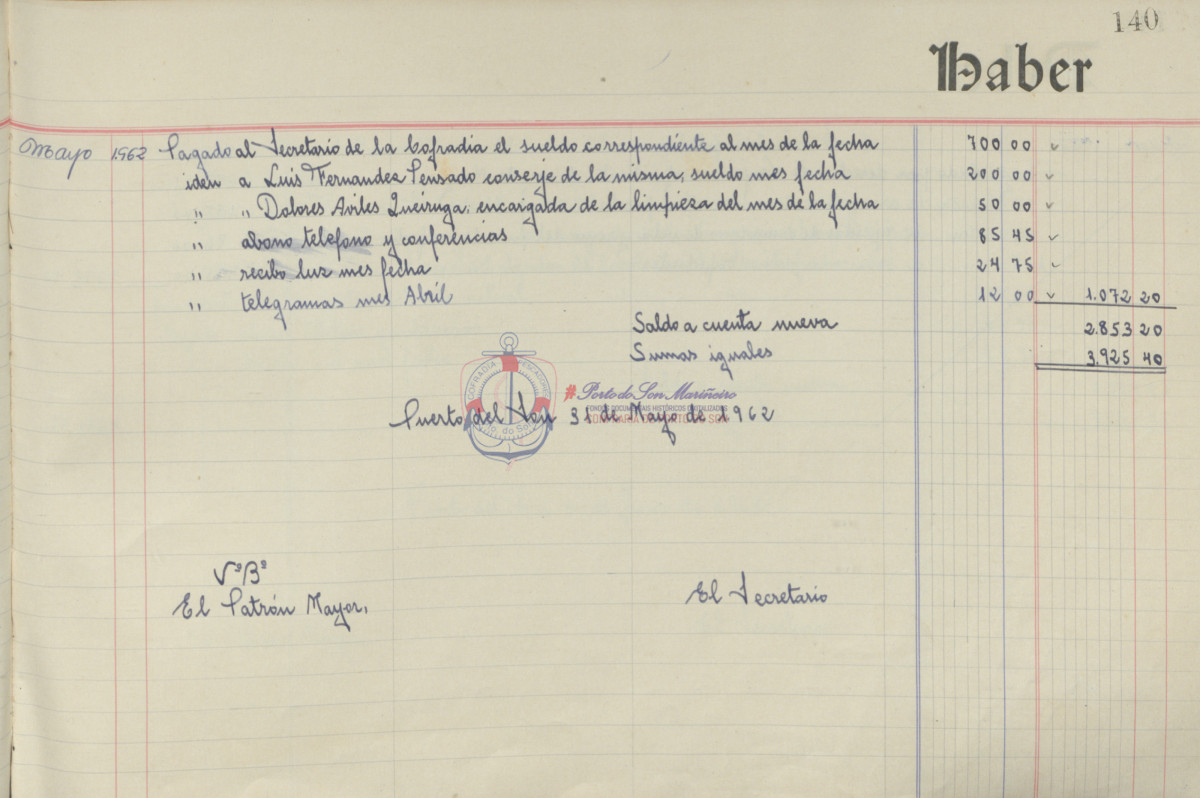 140
Haber
Mayo 1962 Pagado al Secretario de la Cofradia el sueldo correspondiente al mes de la fecha 700 00
iden a Luis Fernandez Pensado conserje de la misma, sueldo mes fecha 200 00
" " Dolores Aviles Queiruga, encargada de la limpieza del mes de la fecha 50 00
" abono telefono y conferencias 85 45
" recibo luz mes fecha 24 75
" telegramas mes Abril 12 00 1.072 20
Saldo a cuenta nueva 2.853 20
Sumas iguales 3.925 40
COFRADIA PESCADORES
Pto. do Son
#Porto do Son Mariñeiro
FONDOS DOCUMENTAIS HISTÓRICOS DIXITALIZADOS
CONFRARÍA DE PORTO DO SON
Puerto del Son 31 de Mayo de 1962
VºBº
El Patrón Mayor, El Secretario